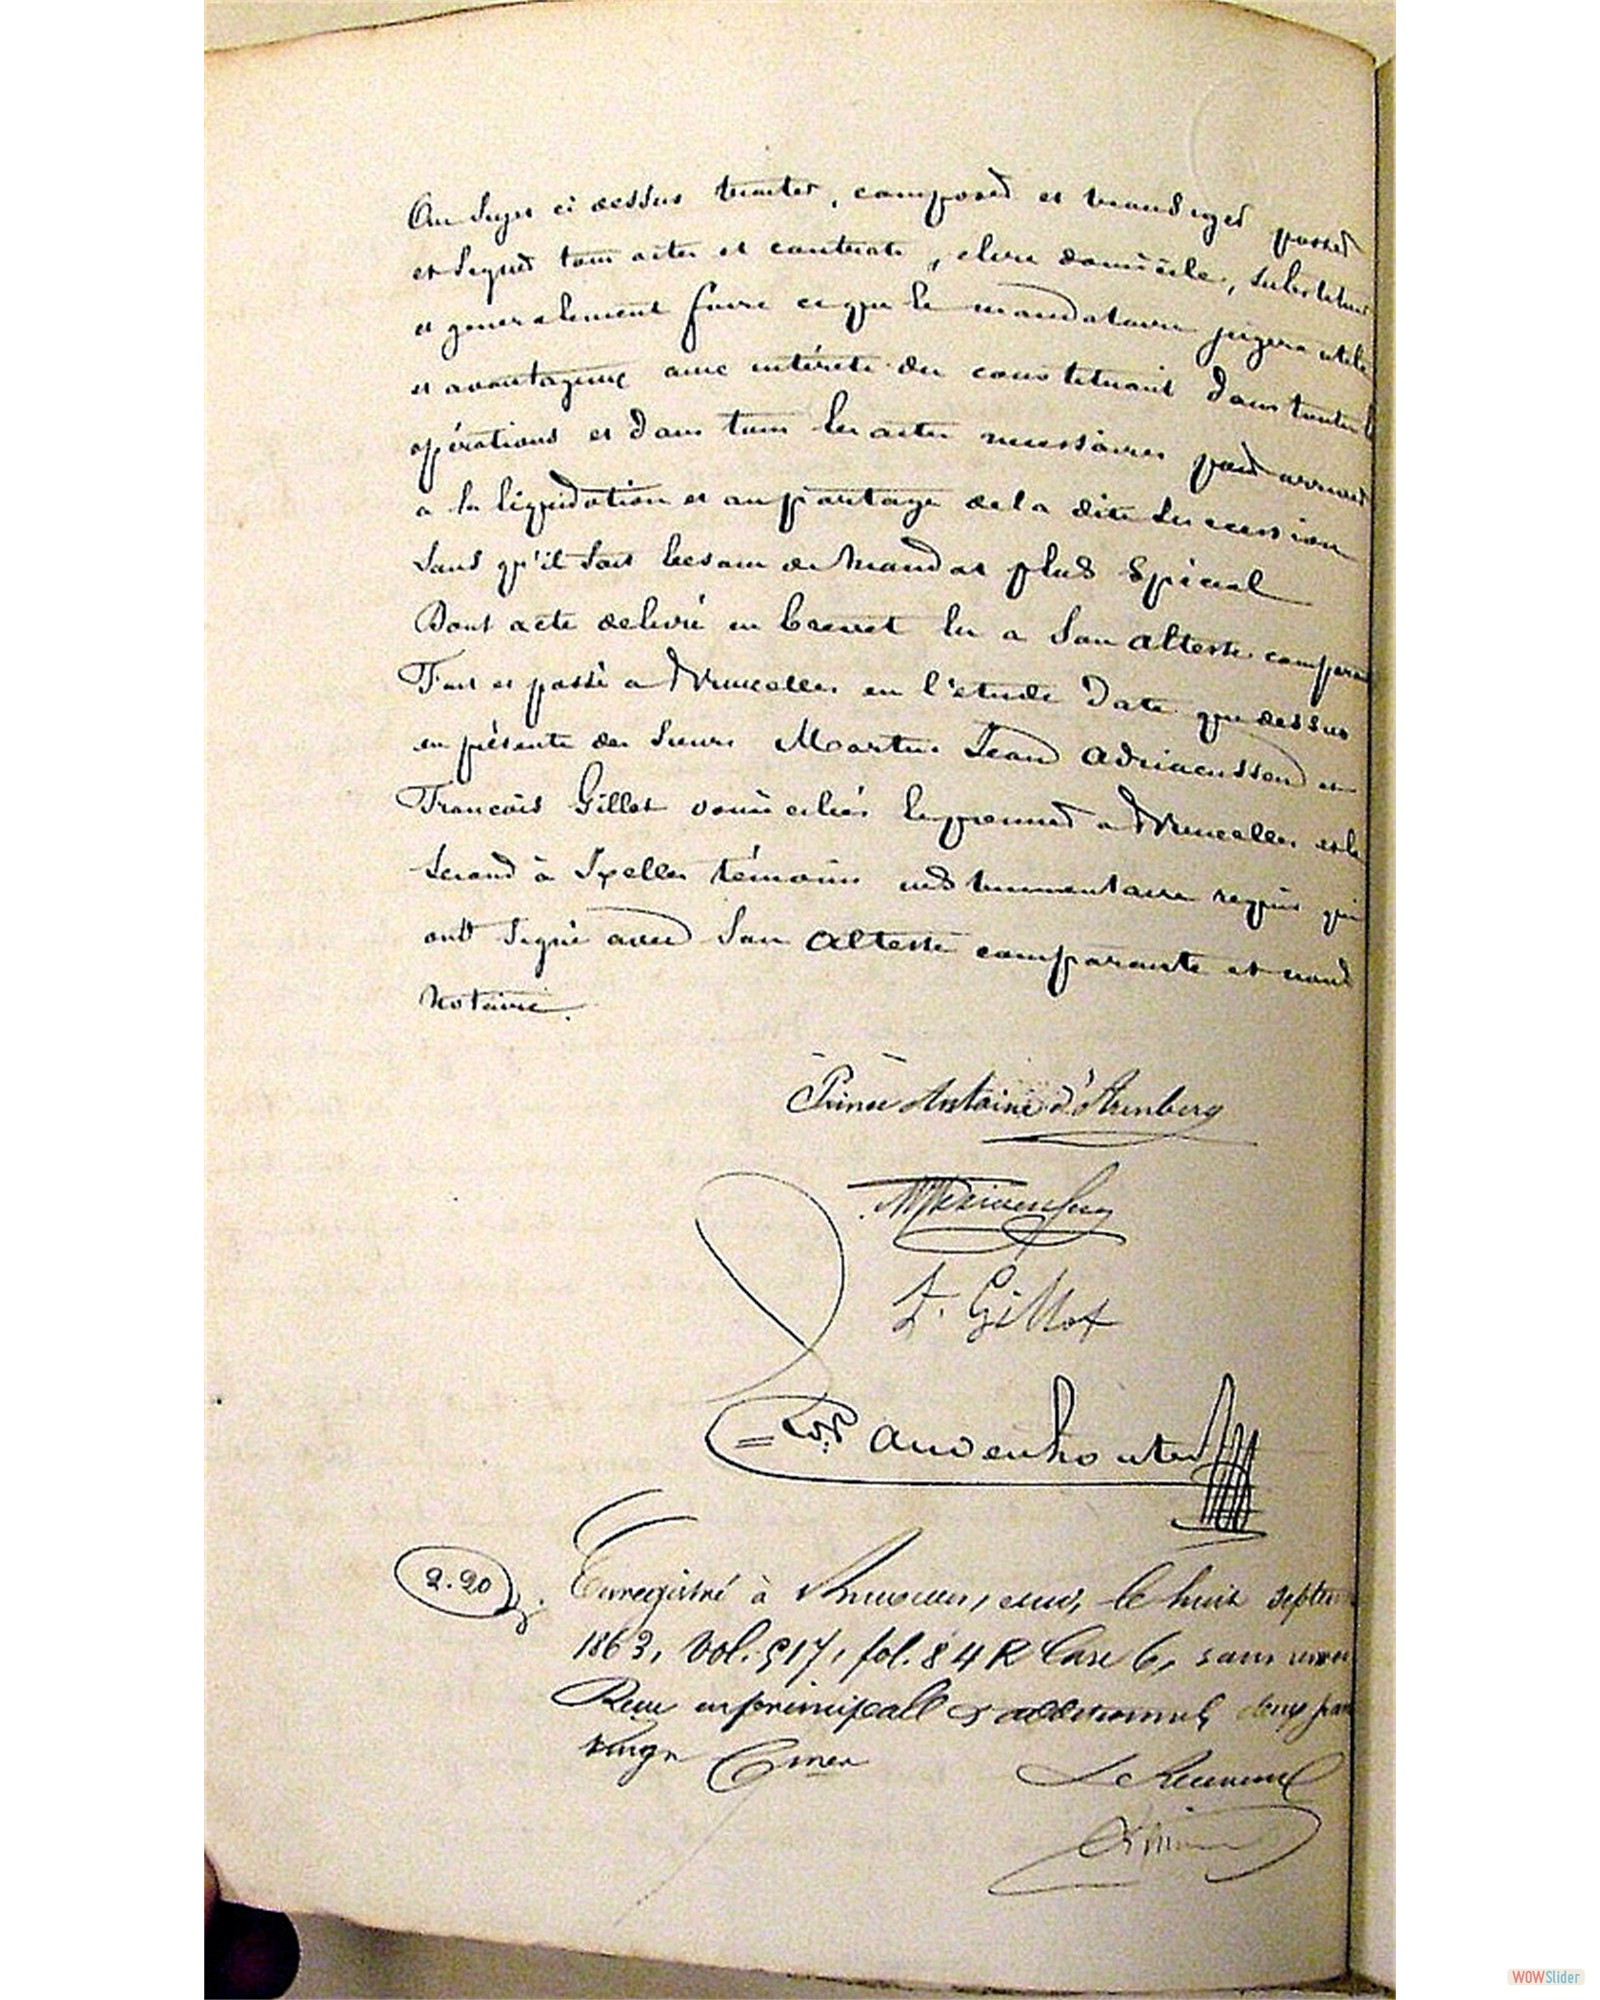 Au sujet ci dessus traiter, composer et transiger passer
et signer tous actes et contrats, elire domicile, substituer
et generalement faire ce que le mandataire jugera utile
et avantageux aux intérets du constituant dans toutes les
opérations et dans tous les actes necessaires pour arriver
a la liquidation et au partage de la dite succession
sans qu'il soit besoin de mandat plus spécial
Dont acte delivré en brevet lu a Son Altesse comparante
Fait et passé a Bruxelles en l'etude Date que dessus
en présente des Sieurs Martin Jean Adriaenssen et
Francois Gillot domiciliés le premier a Bruxelles et le
second à Ixelles témoins instrumentaire requis qui
ont signé avec Son Altesse comparante et nous
Notaire.
Prince Antoine d'Arenberg
F. Gillot
Vandenhouten
2.20
Enregistré à Bruxelles, sud, le huit septembre
1863, Vol. 517, fol. 84 R Case 6, sans renvoi
Recu en principal & additionnels deux francs
vingt Cmes
Le Receveur
WOWSlider